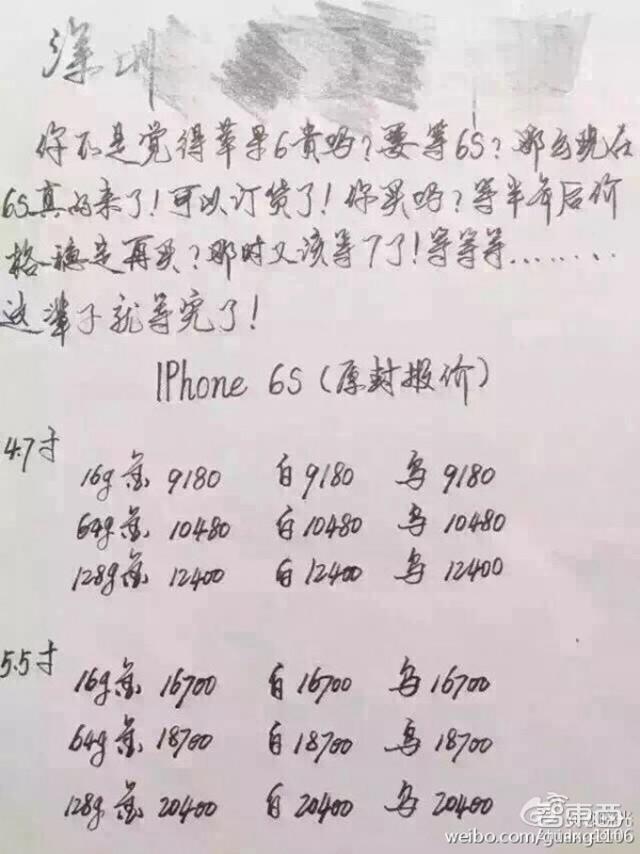 深圳
你不是觉得苹果6贵吗？要等6S？那么现在
6S真的来了！可以订货了！你买吗？等半年后价
格稳定再买？那时又该等7了！等等等........
这辈子就等完了！
IPhone 6S（原封报价）
4.7寸
16g金 9180 白9180 乌 9180
64g金 10480 白10480 乌 10480
128g金 12400 白12400 乌 12400
5.5寸
16g金 16700 白16700 乌 16700
64g金 18700 白18700 乌 18700
128g金 20400 白20400 乌 20400
智東西
weibo.com/guang1106